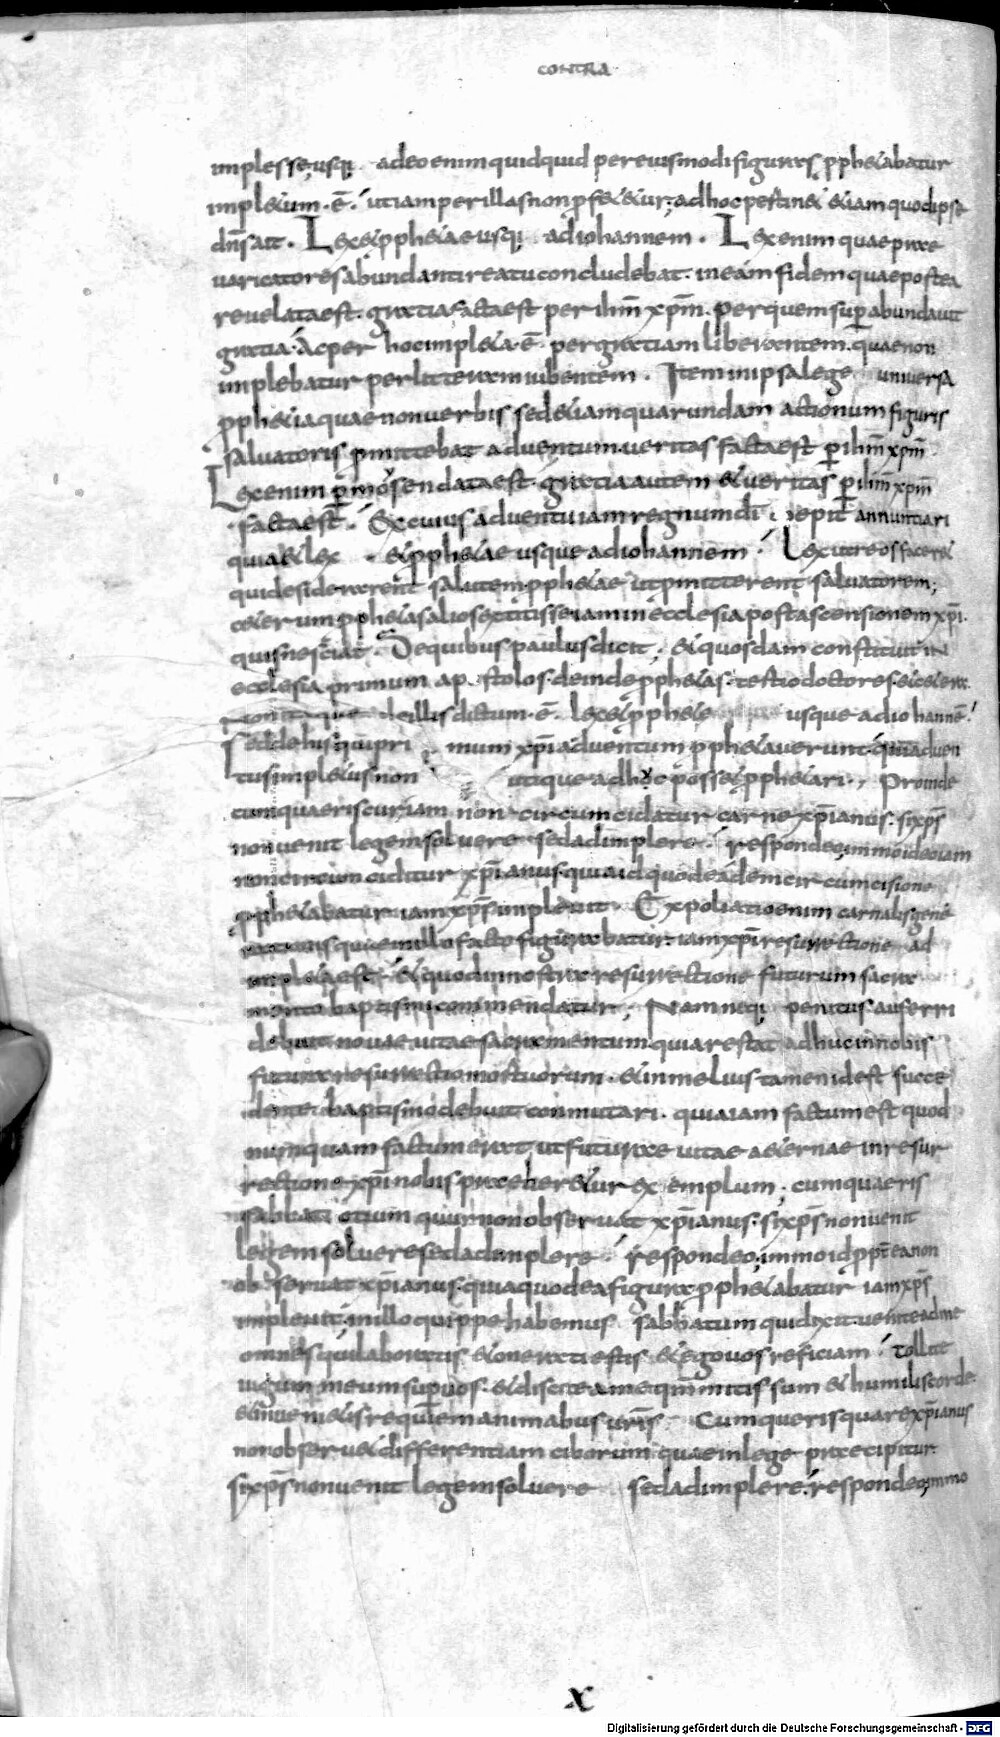 CONTRA
implesse usq; adeo enim quidquid per eiusmodi figuras pphetabatur
impletum · ē · ut iam per illas non pfetetur; ad hoc pertinet etiam quod ipse
dn̄s ait · Lex et pphetae usq; ad iohannem · Lex enim quae prae
varicatores abundanti reatu concludebat · in eam fidem quae postea
revelata est · gratia facta est per ihm̄ xp̄m · per quem supabundavit
gratia · Ac per hoc impleta · ē · per gratiam liberantem · quae non
implebatur per litteram iubentem · Item in ipsa lege universa
pphetia quae non verbis sed etiam quarundam actionum figuris
salvatoris pmittebat adventum · veritas facta est p ihm̄ xpm̄
Lex enim p mosen data est · gratia autem et veritas p ihm̄ xpm̄
facta est · Ex cuius adventu iam regnum dī annuntiari
quia et lex et pphetae usque ad iohannem · Lex ut reos faceret
qui desiderarent salutem pphetae ut pmitterent salvatorem;
ceterum pphetas alios extitisse iam in ecclesia post ascensionem xp̄i
quis nesciat · De quibus paulus dicit; et quosdam constituit in
ecclesia · primum apostolos · deinde pphetas · tertio doctores · et cetera
non itaque de illis dictum · ē · lex et pphete usque ad iohanne ̄ ·
Sed de his qui primum xp̄i adventum pphetaverunt · quia adven
tus impletus non utique adhuc posset pphetari · Proinde
cum quaeris cur iam non circumcidatur carne xp̄ianus · si xp̄s
non venit legem solvere sed adimplere · respondeo; immo ideo iam
non circumciditur xp̄ianus · quia id quod eadem circumcisione
pphetabatur · iam xp̄s implevit · Expoliatio enim carnalis gene
rationis quae in illo facto figurabatur · iam xp̄i resurrectione ad
impleta est · Et quod in nostra resurrectione futurum sacra
mento baptismi commendatur; Nam neq; penitus auferri
debuit novae vitae sacramentum quia restat adhuc in nobis
futura resurrectio mortuorum · et in melius tamen idest succe
dente baptismo debuit conmutari · quia iam factum est quod
numquam factum erat ut futurae vitae aeternae in resur
rectione xp̄i nobis praeberetur exemplum · cum quaeris
sabbati otium quur non observat xp̄ianus · si xp̄s non venit
legem solvere sed adimplere · respondeo; immo id pptea non
observat xp̄ianus · quia quod ea figura pphetabatur iam xp̄s
implevit · in illo quippe habemus sabbatum qui dixit · venite ad me
omnes qui laboratis et onerati estis et ego vos reficiam · Tollite
iugum meum sup vos · et discite a me qm̄ mitis sum et humilis corde
et invenietis requiem animabus vr̄is · Cum queris quare xp̄ianus
non observet differentiam ciborum quae in lege praecipitur
si xp̄s non venit legem solvere sed adimplere · respondeo; immo
X
Digitalisierung gefördert durch die Deutsche Forschungsgemeinschaft - DFG